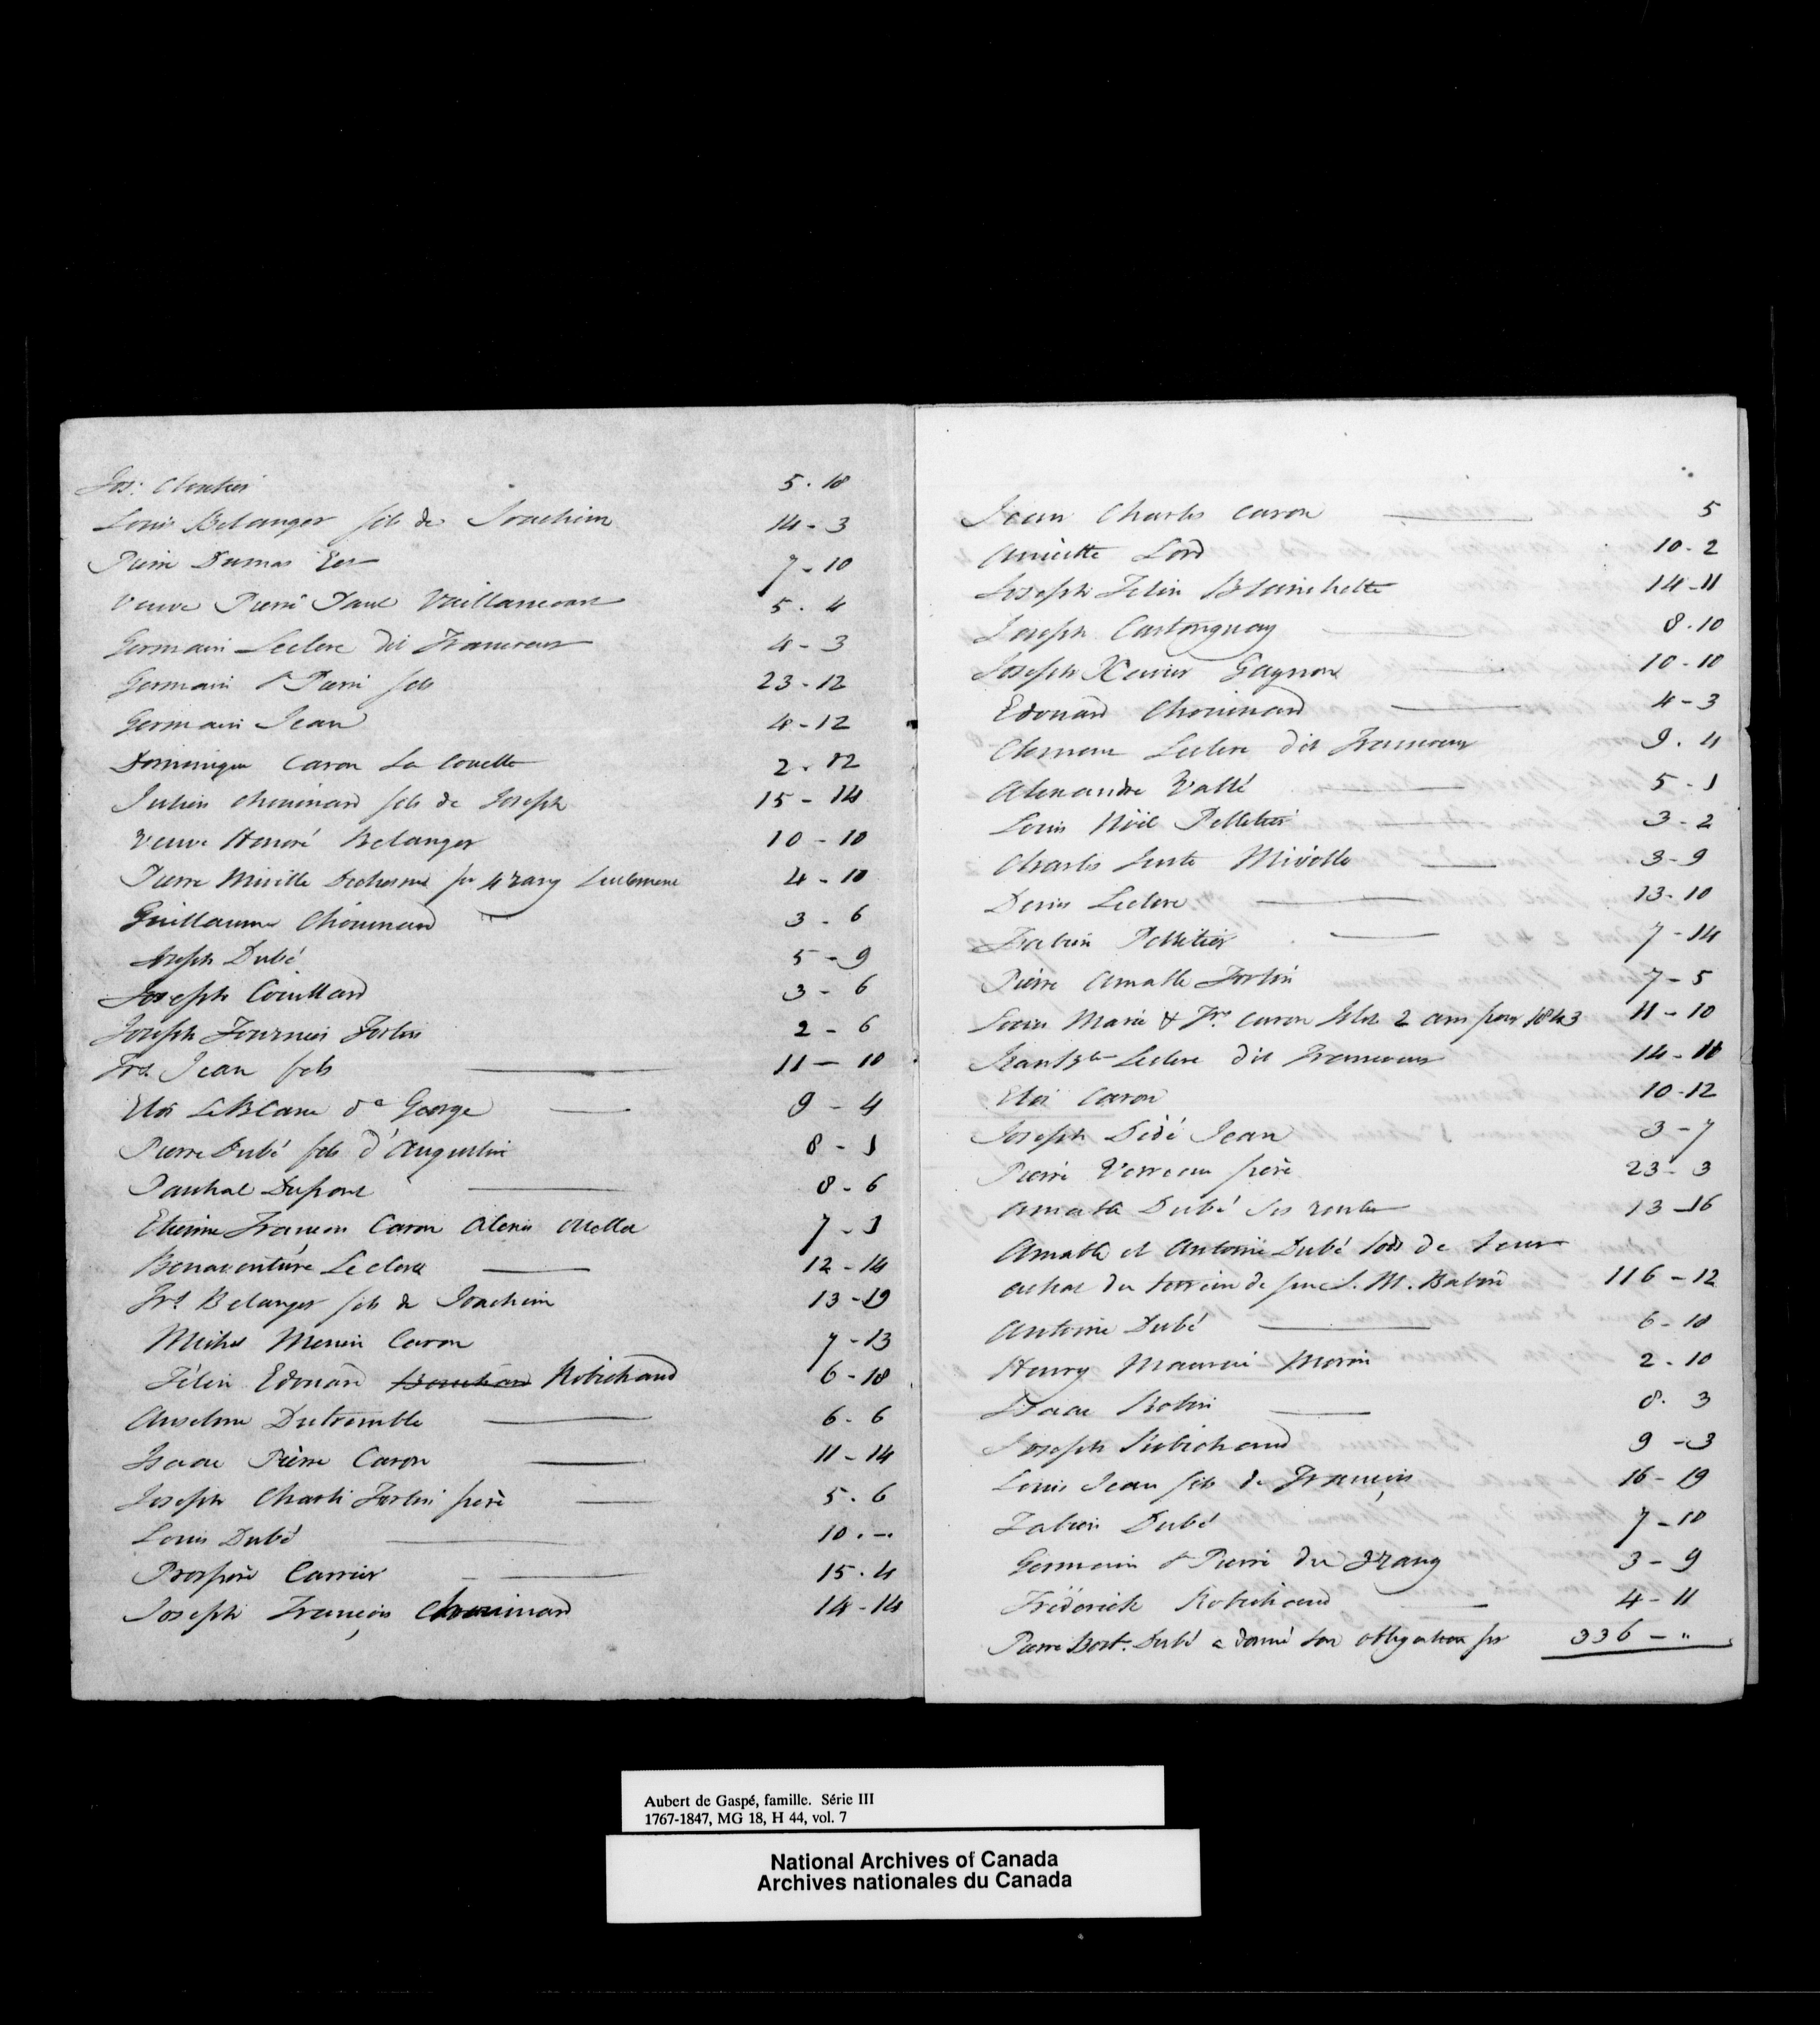 Jos: Cloutier 5 . 18
Louis Belanger fils de Joachim 14 - 3
Pierre Dumas Ecr 7 - 10
Veuve Pierre Paul Vaillancour 5 . 4
Germain Leclerc dit Francoeur 4 - 3
Germain St Pierre fils 23 - 12
Germain Jean 4 - 12
Dominique Caron La Couette 2 - 12
Julien Chouinard fils de Joseph 15 - 14
Veuve Honoré Belanger 10 - 10
Pierre Miville Dechesne pr 4 rang seulement 4 - 10
Guillaume Chouinard 3 - 6
Joseph Dubé 5 - 9
Joseph Couillard 3 - 6
Joseph Fournier Fortin 2 - 6
Frs Jean fils 11 - 10
Eloi LeBlanc de George 9 - 4
Pierre Dubé fils d'Augustin 8 - 1
Paschal Dupont 8 - 6
Etienne François Caron Alexis 7 - 1
Bonaventure Leclerc 12 - 14
Frs Belanger fils de Joachim 13 - 19
Michel Caron 7 - 13
Félix Edouard Robichaud 6 - 18
Anselme Dutremble 6 - 6
Isaac Pierre Caron 11 - 14
Joseph Charli Fortin père 5 . 6
Louis Dubé 10 . -
Prospère Carrier 15 . 4
Joseph François Chouinard 14 - 14
Jean Charles Caron 5
Lord 10 - 2
Joseph Felix Blanchette 14 - 11
Joseph Castonguay 8 . 10
Joseph Xavier Gagnon 10 - 10
Edouard Chouinard 4 - 3
Clement Leclerc dit Francoeur 9 . 4
Alexandre Vallé 5 - 1
Louis Noël Pelletier 3 - 2
Charles Juste Miville 3 - 9
Denis Leclerc 13 - 10
Fabien Pelletier 7 - 14
Pierre Amable Fortin 7 - 5
Marie & Frs Caron 2 ans pour 1843 11 - 10
Jean Bte Leclerc dit Francoeur 14 - 18
Eloi Caron 10 - 12
Joseph Dédé Jean 3 - 7
Pierre Verreau père 23 - 3
Amable Dubé ses rentes 13 - 16
Amable et Antoine Dubé lods de leur
achat du terrein de feu J. M. Babin 116 - 12
Antoine Dubé 6 - 18
Henry Maurice Morin 2 - 10
Isaac Robin 8 . 3
Joseph Robichaud 9 - 3
Louis Jean fils de François 16 - 19
Fabien Dubé 7 - 10
Germain St Pierre du 3 rang 3 - 9
Fréderick Robichaud 4 - 11
Pierre Bart. Dubé a donné son obligation pr 336 - "
Aubert de Gaspé, famille. Série III
1767-1847, MG 18, H 44, vol. 7
National Archives of Canada
Archives nationales du Canada